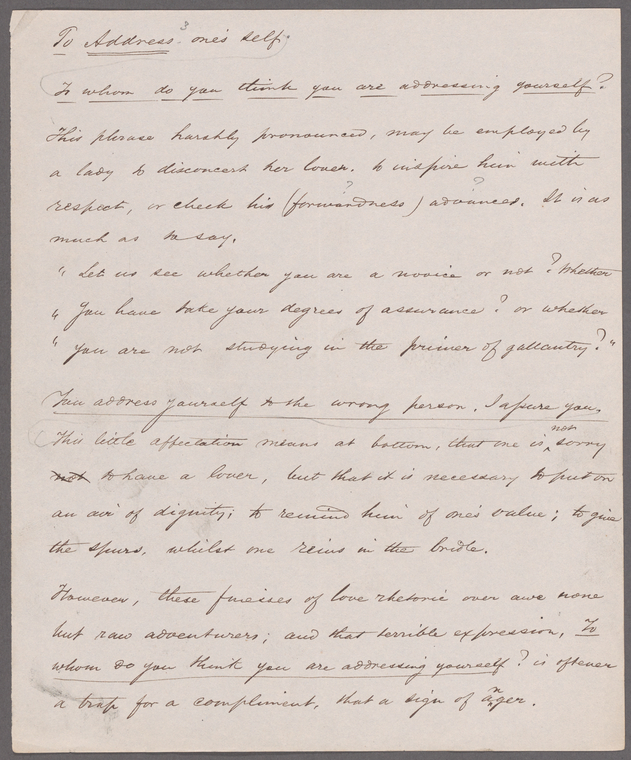 To Address 3 one's self.
To whom do you think you are addressing yourself?
This phrase harshly pronounced, may be employed by
a lady to disconcert her lover. to inspire him with
respect, or check his (forwardness?) advances?. It is as
much as to say.
" Let us see whether you are a novice or not? Whether
" You have take your degrees of assurance? or whether
" you are not studying in the primer of gallantry?"
You address yourself to the wrong person, I assure you.
This little affectation means at bottom, that one is not sorry
not to have a lover, but that it is necessary to put on
an air of dignity; to remind him of one's value; to give
the spurs, whilst one reins in the bridle.
However, these finesses of love rhetoric over awe none
but raw adventurers; and that terrible expression, To
whom do you think you are addressing yourself? is oftener
a trap for a compliment, that a sign of anger.